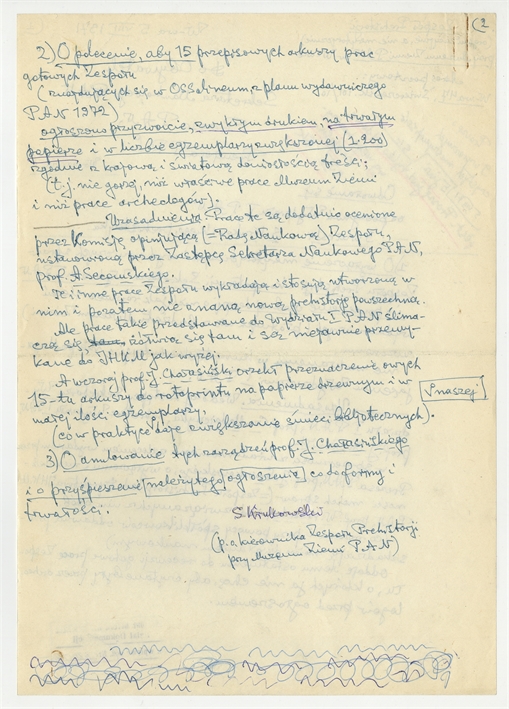 (2
2) O polecenie, aby 15 przepisowych arkuszy prac
gotowych Zespołu
(znajdujących się w OSSolineum, z planu wydawniczego
PAN 1972)
ogłoszono przyzwoicie, zwykłym drukiem, na trwałym
papierze i w liczbie egzemplarzy zwiększonej (1.200)
zgodnie z krajową i światową doniosłością treści;
(t.j. nie gorzej, niż właściwe prace Muzeum Ziemi
i niż prace archeologów).
Uzasadnienie. Prace te są dodatnio ocenione
przez Komisję opiniującą (=Radę Naukową) Zespołu,
ustanowioną przez Zastępcę Sekretarza Naukowego PAN,
prof. A. Secomskiego.
Te i inne prace Zespołu wykładają i stosują utworzoną w
nim i poza tem nie znaną nową prehistorję powszechną.
Ale prace takie przedstawane do Wydziału I PAN ślima-
czą się żółwią się tam i są niejawnie przemy-
kane do IHKM jak wyżej.
A wczoraj prof. J. Chałasiński orzekł przeznaczenie owych
15-tu arkuszy do rotoprintu na papierze drzewnym i w
małej ilości egzemplarzy.
\naszej
(co w praktyce daje zwiększanie śmieci bibljotecznych).
3) O anulowanie tych zarządzeń prof. J. Chałasińskiego
i o przyśpieszenie należytego ogłoszenia co do formy i
trwałości.
S. Krukowski
(p.o. kierownika Zespołu Prehistorji
przy Muzeum Ziemi PAN)